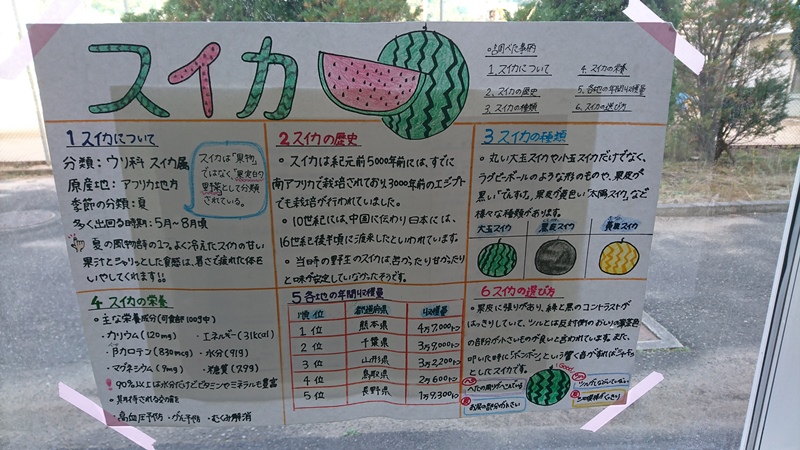 スイカ
○調べた事柄
1.スイカについて
2.スイカの歴史
3.スイカの種類
4.スイカの栄養
5.各地の年間収穫量
6.スイカの選び方
1 スイカについて
分類：ウリ科 スイカ属
原産地：アフリカ地方
季節の分類：夏
多く出回る時期：5月～8月頃
夏の風物詩の1つ。よく冷えたスイカの甘い
果汁とシャリっとした食感は、暑さで疲れた体を
いやしてくれます!!
スイカは「果物」
ではなく、「果実的
野菜」として分類
されている。
2 スイカの歴史
○ スイカは紀元前5000年前には、すでに
南アフリカで栽培されており4000年前のエジプト
でも栽培が行われていました。
○ 10世紀には、中国に伝わり日本には、
16世紀後半頃に渡来したといわれています。
○ 当時の野生のスイカは、苦かったり甘かったり
と味が安定していなかったそうです。
3 スイカの種類
○ 丸い大玉スイカや小玉スイカだけでなく、
ラグビーボールのような形のものや、果皮が
黒い「でんすけ」、果皮が黄色い「太陽スイカ」など
様々な種類があります。
大玉スイカ
黒皮スイカ
黄皮スイカ
4 スイカの栄養
○ 主な栄養成分(可食部100g中)
・カリウム(120mg)
・エネルギー(37kcal)
・βカロテン(830mcg)
・水分(91g)
・マグネシウム(9mg)
・糖質(7.9g)
90%以上は水分だけどビタミンやミネラルも豊富
○ 期待される効果
・高血圧予防 ・ガン予防 ・むくみ解消
5 各地の年間収穫量
順位 都道府県 収穫量
1位 熊本県 4万7,000トン
2位 千葉県 3万9,000トン
3位 山形県 3万2,200トン
4位 鳥取県 2万600トン
5位 長野県 1万9,300トン
6 スイカの選び方
○ 果皮に張りがあり、緑と黒のコントラストが
はっきりしていて、ツルとは反対側のおしりの茶
の部分が小さいものが良いと言われています。また、
叩いた時に「ボンボン」という響く音がすればシャキッ
としたスイカです。
Good!